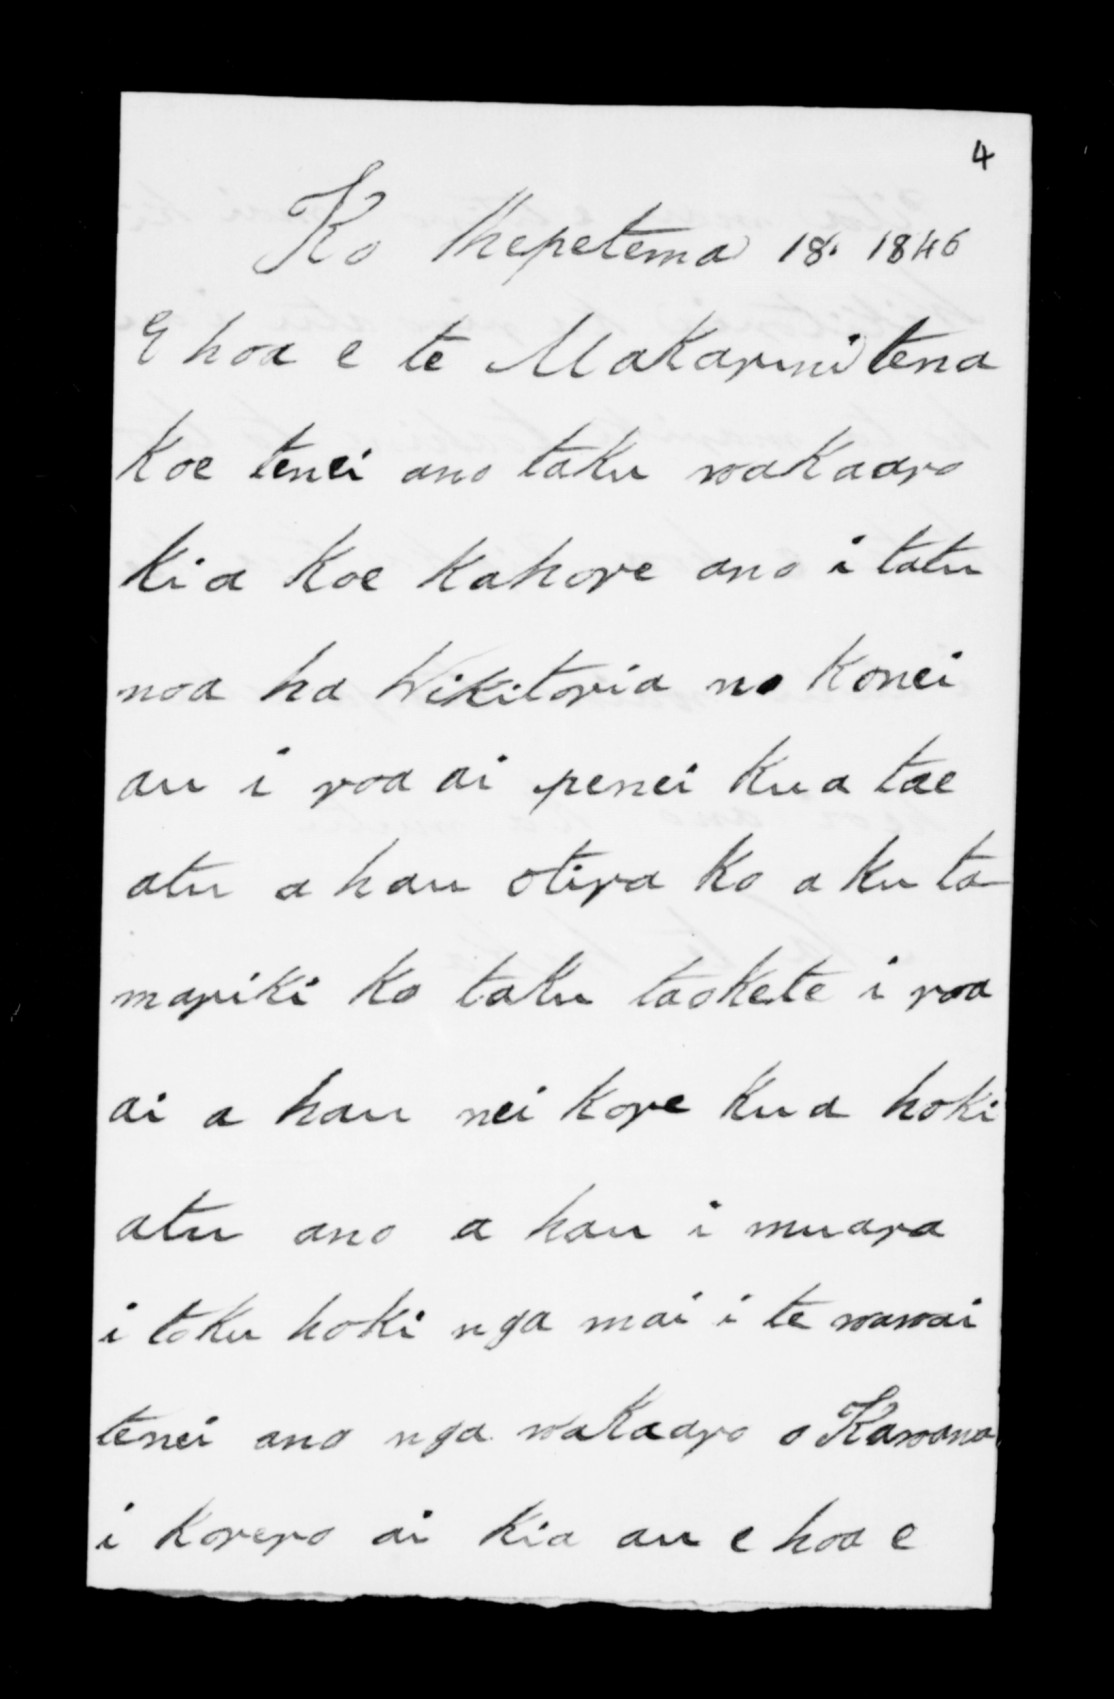 4
Ko Hepetema 18. 1846
E hoa e te Makarini tena
koe tenei ano taku wakaaro
kia koe kahore ano i tatu
noa ha Wikitoria no konei
au i roa ai penei kua tae
atu a hau otira ko a ku ta
mariki ko taku taokete i roa
ai a hau nei kore kua hoki
atu ano a hau i muara
i toku hoki nga mai i te wawai
tenei ano nga wakaaro o Kawana
i korero ai kia au e hoa e